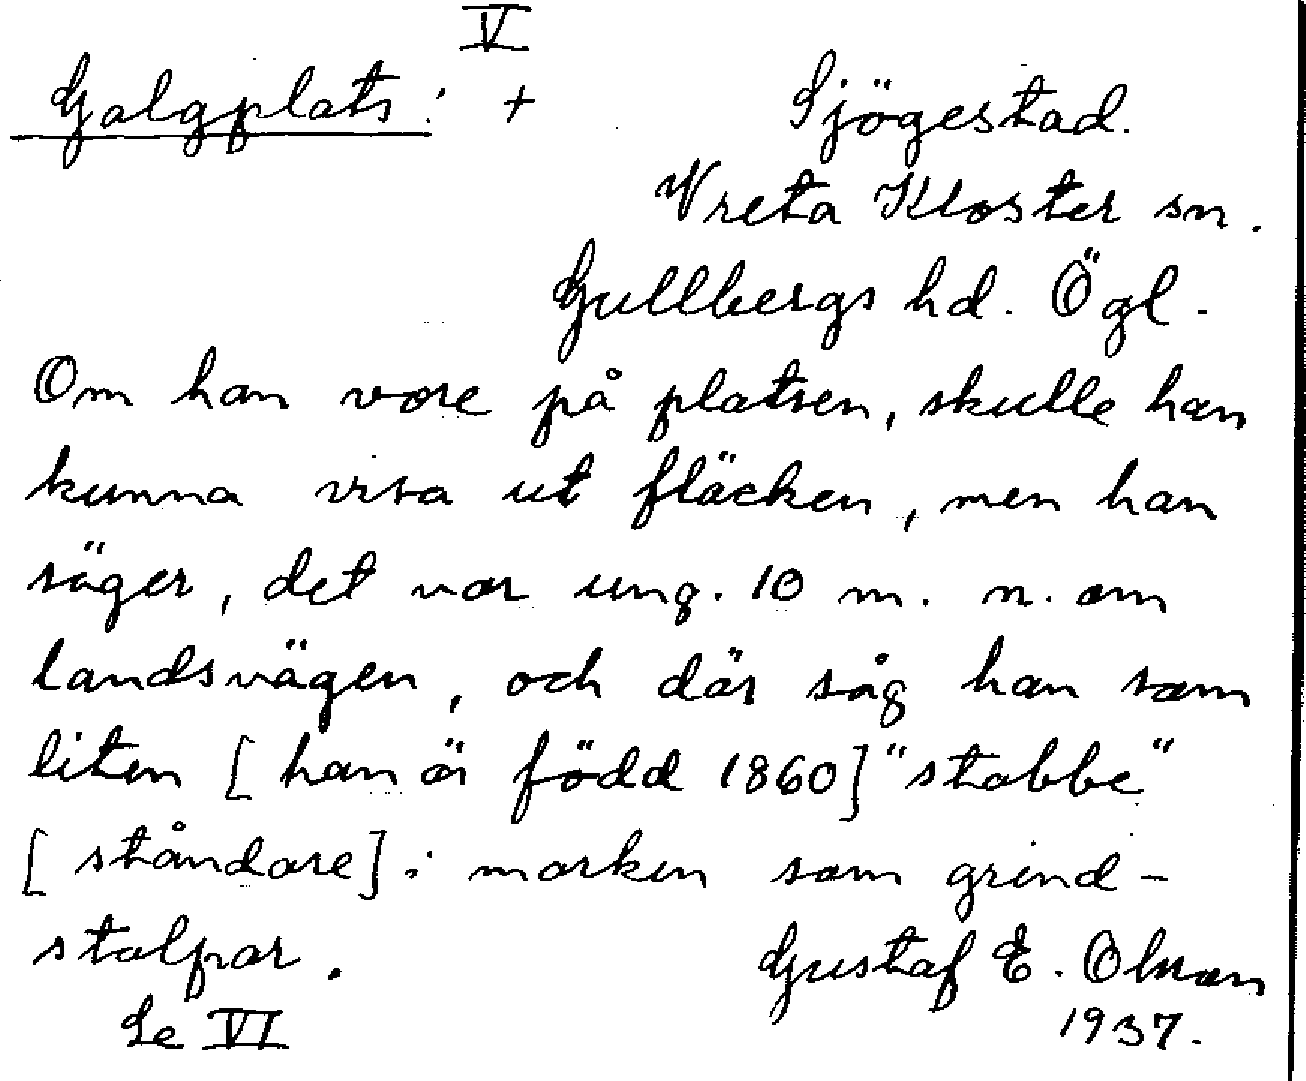 V
Galgplats: + Sjögestad.
Vreta Kloster sn.
Gullbergs hd. Ögl.
Om han vore på platsen, skulle han
kunna visa ut fläcken, men han
säger, det var ung. 10 m. n. om
landsvägen, och där såg han som
liten [han är född 1860] "stabbe"
[ståndare] i marken som grind-
stolpar.
Gustaf E. Olsson
Se VI
1937.